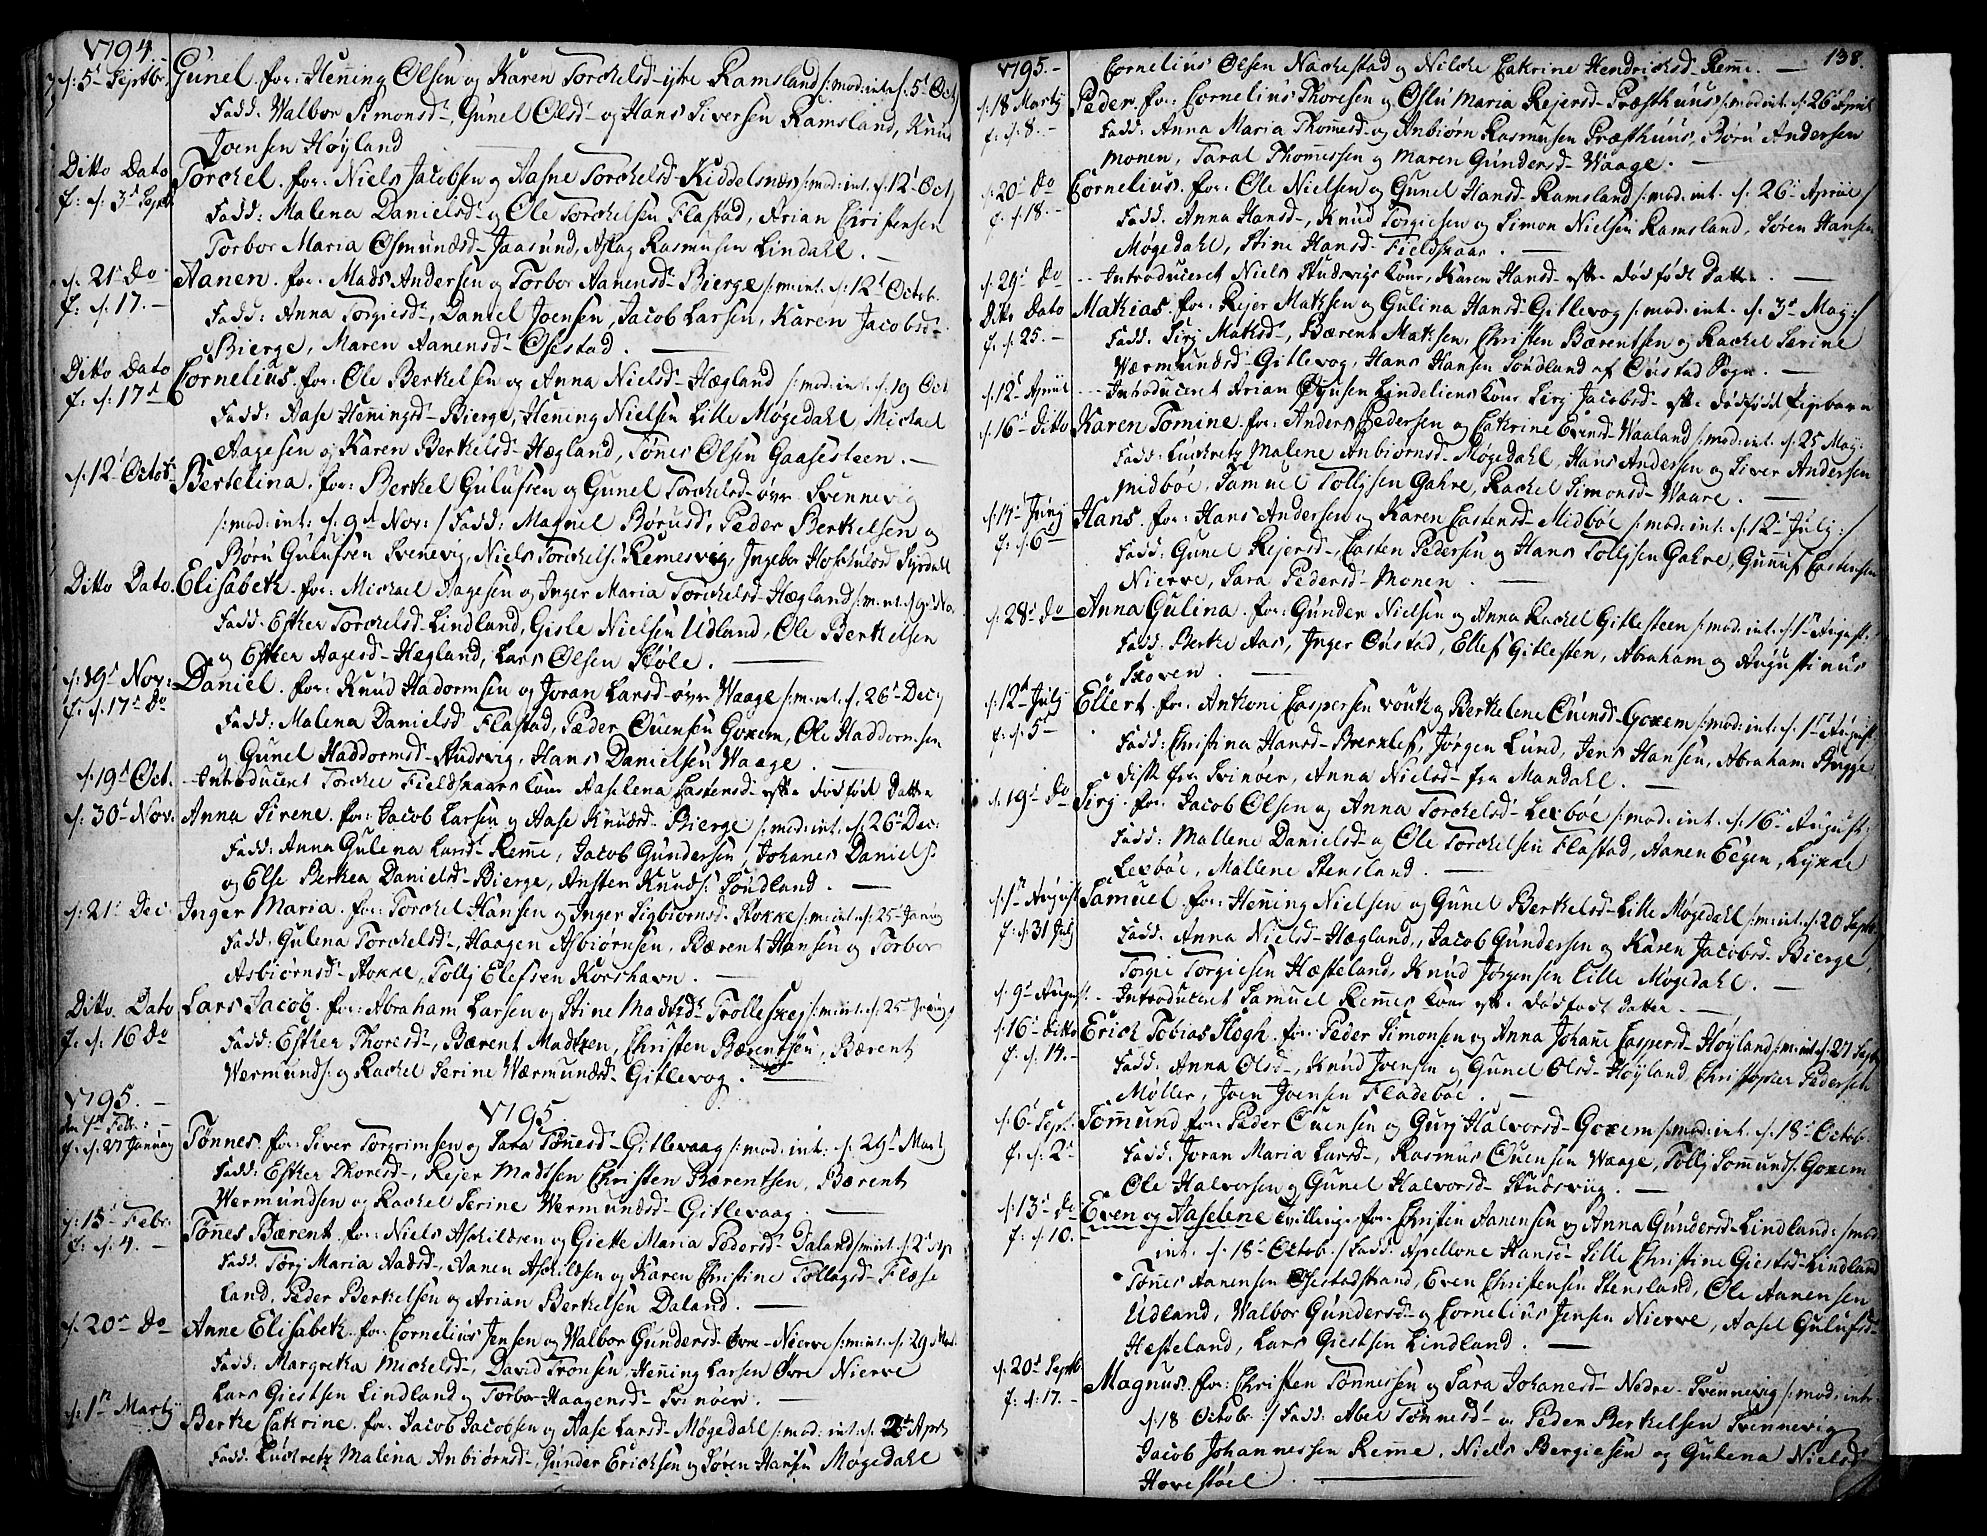 1794.
d: 5t Septbr. Gunel. for: Hening Olsen og Karen Torchelsd- ytre Ramsland /: mod: int: d. 5t Oct:/
Fadd: Walbor Simonsd-, Gunel Olsd- og Hans Siversen Ramsland, Knud
Joensen Høyland
Ditto Dato Torchel. for: Niels Jacobsen og Aasne Torchelsd- Kiddelsnæs /: mod: int: d. 12t Oct:/
f: d: 3t Sept. Fadd: Malena Danielsd- og Ole Torchelsen Flastad, Arian Christensen
Torbor Maria Osmundsd- Jaasund, Aslag Rasmusen Lindahl. —
d. 21t do Aanen. for: Mads Andersen og Torbor Aanensd- Bierge /: m: int: d. 12t Octob.
f: d. 17. — Fadd: Anna Torgiesd-, Daniel Joensen, Jacob Larsen, Karen Jacobsd-
Bierge, Maren Aanensd- Osestad. —
Ditto Dato Cornelius. for: Ole Berthelsen og Anna Nielsd- Hægland /: mod: int: d. 19 Oct
f: d: 17t Fadd: Aase Heningsd- Bierge, Hening Nielsen Lille Møgedahl Michael
Aagesen og Karen Berthelsd- Hægland, Tønes Olsen Gaasesteen. —
d: 12t Octob. Bertelina. for: Berthel Gulufsen og Gunel Torchelsd- øvr Svennevig
/: mod: int: d. 9t Nov:/ Fadd: Magnel Børusd, Peder Berthelsen og
Børu Gulufsen Svenevig, Niels Torchels: Remesvig, Ingebor
Ditto Dato. Elisabeth. for: Michael Aagesen og Inger Maria Torchelsd- Hægland /: m: int: d. 9t Nov
Fadd: Esther Torchelsd- Lindland, Gisle Nielsen Udland, Ole Berthelsen
og Esther Aagesd- Hægland, Lars Olsen Støle. —
d: 19t Nov: Daniel. for: Knud Hadormsen og Joran Larsd- øvr Waage /: m: int: d. 26t Dec:/
f: d: 17t do Fadd: Malena Danielsd Flastad, Peder Ouensen Goxem, Ole Haddormsen
og Gunel Haddormsd- Studsvig, Hans Danielsen Waage. —
d: 19t Oct. - Introduceret Torchel Fieldskaars Kone Aaselena Castensd- efte dødfød Datte
d. 30t Nov: Anna Sirene. for: Jacob Larsen og Aase Knudsd- Bierge /: mod: int: d. 26t Dec:
Fadd: Anna Gulena Larsd- Reme, Jacob Gundersen, Johanes Daniels:
og Else Berthea Danielsd- Bierge, Austen Knuds: Soudland. —
d: 21t Dec: Inger Maria. for: Torchel Hansen og Inger Sigbiornsd- Stokke /: m: int: d. 25t Januj
Fadd: Gulena Torchelsd-, Haagen Asbiørnsen, Bærent Hansen og Torbor
Asbiørnsd- Stokke, Tollj Elefsen Korshavn. —
Ditto. Dato Lars Jacob. for: Abraham Larsen og Stine Madtsd- Trolleskej /: m: int: d. 25t Januj
f: d: 16 do Fadd: Esther Thoresd-, Bærent Madtzen, Christen Bærentsen, Bærent
Wermunds: og Rachel Serine Wærmundsd- Gitlevog. —
1795. — 1795.
den 1ste Febr: Tønnes. for: Siver Torgrimsen og Sara Tønesd- Gitlevaag /: mod: int: d. 29t Mart
f: d: 27 Januarj Fadd: Esther Thoresd-, Rejer Madtsen Christen Bærentsen, Bærent
Wermundsen og Rachel Serine Wermundsd- Gitlevaag. —
d: 15t Febr. Tønes Bærent. for: Niels Aschildsen og Giette Maria Pedersd- Daland /: m: int: d. 2t Apr
f: d. 4. — Fadd: Torj Maria Aadsd-, Aanen Aschildsen og Karen Christine Tollagsd- Flæse
land, Peder Berthelsen og Arian Berthelsen Daland. —
d. 20t do Anne Elisabeth. for: Cornelius Jensen og Walbor Gundersd- Øvre-Nierve /: m: int: d: 29 Mar
Fadd: Margretha Michelsd-, David Tronsen, Hening Larsen Øvre Nierve
Lars Giestsen Lindland og Torbor Haagensd- Svinøer. —
d: 1st Martij Berthe Cathrine. for: Jacob Jacobsen og Aase Larsd- Møgedahl /: mod: int: d. 2t Apr
Fadd: Ludvretz Malena Anbiørnsd-, Gunder Erichsen og Søren Hansen Møgedahl
138.
1795. — Cornelius Olsen Nachestad og Nilche Cathrine Hendrichsd- Reme. —
d. 18 Martij Peder. for: Cornelius Thoresen og Oslu Maria Rejersd- Præsthuus /: mod: int: d: 26t April
f: d. 8. — Fadd: Anna Maria Thomesd- og Anbiørn Rasmusen Præsthuus, Børu Andersen
Monen, Taral Thomessen og Maren Gundersd- Waage. —
d: 20t do Cornelius. for: Ole Nielsen og Gunel Hansd- Ramsland /: mod: int. d: 26t Aprile/
f: d. 18. — Fadd: Anna Hansd-, Knud Torgiesen og Simon Nielsen Ramsland, Søren Hansen
Møgedahl, Stine Hansd- Fieldskaar. —
d. 29t do - Introduceret Niels Studsvigs Kone, Karen Hansd- efte dødfødt Datte. —
Ditto Dato Mathias. for: Rejer Mathsen og Gulina Hansd- Gitlevog /: mod: int. d. 3t Maj:/
f. d. 25. — Fadd: Sirj Mathsd-, Bærent Mathsen, Christen Bærentsen og Rachel Serine
Wærmundsd- Gitlevog, Hans Hansen Soudland af Oustad Sogn. —
d: 12t April - Introduceret Arian Ougusen Lindeliens Kone Sirj Jacobsd- efte dødfødt Pigebarn
d. 16t Ditto Karen Tomine. for: Anders Pedersen og Cathrine Evensd- Waaland /: mod: int: d. 25 Maj:
Fadd: Ludvretz Malene Anbiørnsd- Møgedahl, Hans Andersen og Siver Andersen
Midbøe, Samuel Tollissen Gahre, Rachel Simonsd- Waare. —
d. 14t Junj Hans. for: Hans Andersen og Karen Castensd- Midbøe /: mod: int: d. 12t Julj:/
f: d: 6t Fadd: Gunel Rejersd-, Casten Pedersen og Hans Tollissen Gahre, Gunuf Castensen
Nierve, Sara Pedersd- Monen. —
d: 28t do Anna Gulina. for: Gunder Nielsen og Anna Rachel Gitlesteen /: mod: int: d. 1st August:
Fadd: Berthe Aas, Inger Oustad, Ellef Gitlesten, Abraham og Augustinus
Skoven. —
d: 12t Julj Ellert. for: Anthoni Caspersen Vouk og Berthelene Ouensd- Goxem /: mod: int: d. 1st August
f: d: 5t Fadd: Christina Hansd- Brexlef, Jørgen Lund, Jens Hansen, Abraham Brygge
disk fra Svinøer, Anna Nielsd- fra Mandahl. —
d. 19t do Sirj. for: Jacob Olsen og Anna Torchelsd- Lexbøe /: mod: int: d. 16t August:
Fadd: Mallene Danielsd- og Ole Torchelsen Flastad, Aanen Eegen, Lykke
Lexbøe, Mallene Stensland. —
d: 1st August Samuel. for: Hening Nielsen og Gunel Berthelsd- Lille Møgedahl /: m: int: d: 20 Sept:
f: d: 31 Julj Fadd: Anna Nielsd- Hægland, Jacob Gundersen og Karen Jacobsd- Bierge,
Torgie Torgiesen Hæsteland, Knud Jørgensen Lille Møgedahl. —
d. 9t August - Introduceret Samuel Remes Kone efte dødfødt Datter. —
d: 16t ditto Erich Tobias Høgh. for: Peder Simonsen og Anna Johane Caspersd- Høyland /: m: int: d: 27 Sept
f: d. 14. — Fadd: Anna Olsd-, Knud Joensen og Gunel Olsd- Høyland Christopher Pedersen
Møller, Joen Joensen Fladebøe. —
d: 6t Sept: Tomund for: Peder Ouensen og Gurj Halvorsd- Goxem /: mod: int: d. 18t Octob
f: d: 2t Fadd: Joran Maria Larsd-, Rasmus Ouensen Waage, Tollj Somunds: Goxem
Ole Halvorsen og Gunel Halvorsd- Studsviig. —
d: 13t do Even og Aaselene tvillinge for: Christen Aanensen og Anna Gundersd- Lindland: /: mod:
f: d: 10. — int: d. 18t Octob:/ Fadd: Apellone Hansd- Lille Christine Giestsd- Lindland
Tønes Aanensen Osestadstrand, Even Christensen Stensland, Ole Aanensen
Udland, Walbor Gundersd- og Cornelius Jensen Nierve, Aasel Gulufsd-
Hesteland, Lars Giestsen Lindland. —
d: 20t Septb Magnus. for: Christen Tønnessen og Sara Johanesd- Nedre- Svennevig /: mod: int:
f: d: 17. — d: 18 Octobr:/ Fadd: Abel Tønnesd- og Peder Berthelsen Svennevig
Jacob Johannessen Reme, Niels Bergiesen og Gulena Nielsd
Hovestøel —